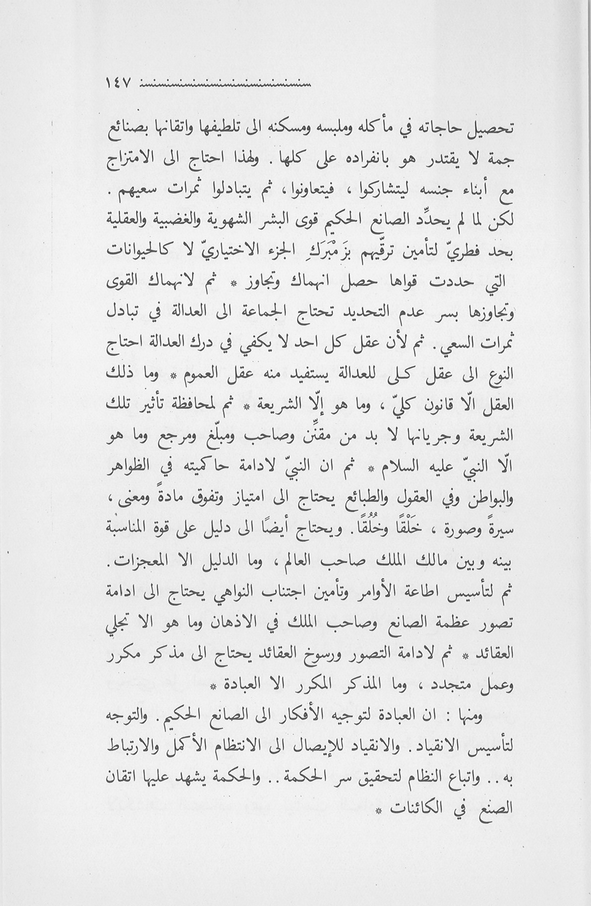 ١٤٧
تحصيل حاجاته في مأكله وملبسه ومسكنه الى تلطيفها واتقانها بصنائع
جمة لا يقتدر هو بانفراده على كلها . ولهذا احتاج الى الامتزاج
مع أبناء جنسه ليتشاركوا ، فيتعاونوا، ثم يتبادلوا ثمرات سعيهم .
لكن لما لم يحدِّد الصانع الحكيم قوى البشر الشهوية والغضبية والعقلية
بحد فطريّ لتأمين ترقّيهم بزَمْبَرَكِ الجزء الاختياريّ لا كالحيوانات
التي حددت قواها حصل انهماك وتجاوز * ثم لانهماك القوى
وتجاوزها بسر عدم التحديد تحتاج الجماعة الى العدالة في تبادل
ثمرات السعي. ثم لأن عقل كل احد لا يكفي في درك العدالة احتاج
النوع الى عقل كلي للعدالة يستفيد منه عقل العموم * وما ذلك
العقل الّا قانون كليّ ، وما هو إلّا الشريعة * ثم لمحافظة تأثير تلك
الشريعة وجريانها لا بد من مقنِّن وصاحب ومبلّغ ومرجع وما هو
الّا النبيّ عليه السلام * ثم ان النبيّ لادامة حاكميته في الظواهر
والبواطن وفي العقول والطبائع يحتاج الى امتياز وتفوق مادةً ومعنى ،
سيرةً وصورة ، خَلْقًا وخُلُقًا. ويحتاج أيضًا الى دليل على قوة المناسبة
بينه وبين مالك الملك صاحب العالم ، وما الدليل الا المعجزات.
ثم لتأسيس اطاعة الأوامر وتأمين اجتناب النواهي يحتاج الى ادامة
تصور عظمة الصانع وصاحب الملك في الاذهان وما هو الا تجلي
العقائد * ثم لادامة التصور ورسوخ العقائد يحتاج الى مذكر مكرر
وعمل متجدد ، وما المذكر المكرر الا العبادة *
ومنها : ان العبادة لتوجيه الأفكار الى الصانع الحكيم. والتوجه
لتأسيس الانقياد. والانقياد للإيصال الى الانتظام الأكمل والارتباط
به .. واتباع النظام لتحقيق سر الحكمة .. والحكمة يشهد عليها اتقان
الصنع في الكائنات *